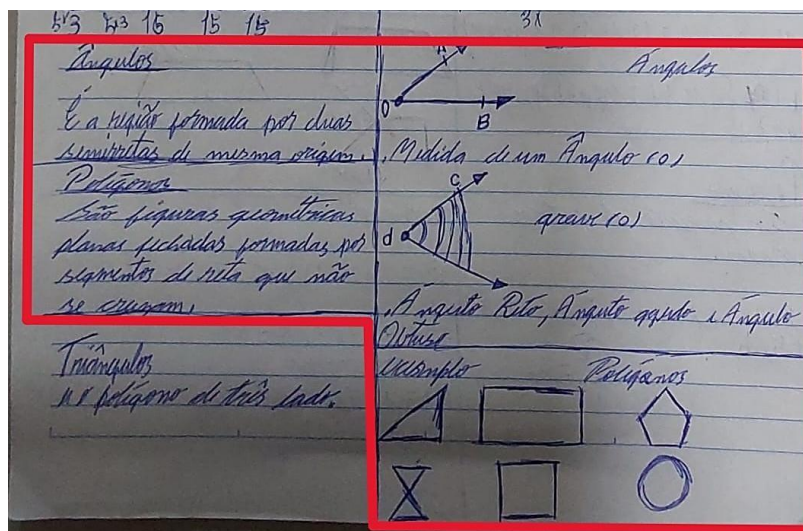 53 43 15 15 15
31
Ângulos
É a região formada por duas
semirretas de mesma origem.
Polígonos
São figuras geométricas
planas fechadas formadas por
segmentos de reta que não
se cruzam.
Triângulos
polígono de três lado.
A
Ângulos
O
B
. Medida de um Ângulo (o)
C
grave (o)
d
. Ângulo Reto, Ângulo agudo e Ângulo
Obtuso
exemplo Polígonos